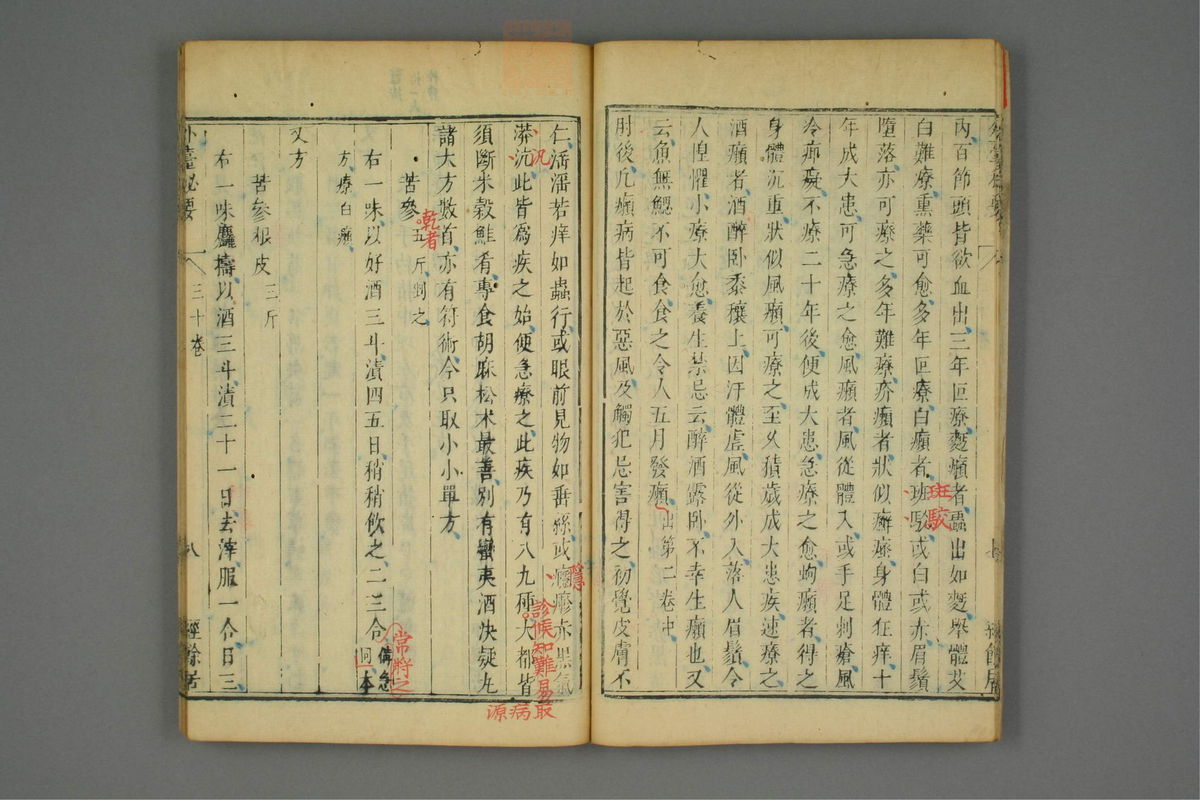 內百節頭皆欲血出三年叵療麪癩者蟲出如麪舉體艾
白難療熏藥可愈多年叵療白癩者班駮或白或赤眉鬚
墮落亦可療之多年難療疥癩者狀似癬瘙身體狂痒十
年成大患可急療之愈風癩者風從體入或手足刺瘡風
冷痹癡不療二十年後便成大患急療之愈蚼癩者得之
身體沉重狀似風癩可療之至久積歲成大患疾速療之
酒癩者酒醉卧黍穰上因汗體虛風從外入落人眉鬚令
人惶懼小療大愈養生禁忌云醉酒露卧不幸生癩也又
云魚無鰓不可食食之令人五月發癩出第二卷中
肘後凡癩病皆起於惡風及觸犯忌害得之初覺皮膚不
仁淫淫若痒如蟲行或眼前見物如垂絲或癮疹赤黑氣
漭沆此皆爲疾之始便急療之此疾乃有八九種大都皆
須斷米穀鮭肴專食胡麻松朮最善別有蠻夷酒決疑丸
諸大方數首亦有符術今只取小小單方
苦參五斤剉之
右一味以好酒三斗漬四五日稍稍飲之二三合備急同本
方療白癩
又方
苦參根皮三斤
右一味麤擣以酒三斗漬二十一日去滓服一合日三
三十卷
八
經餘居
班駮
況
乾者
隱
診候知難易最
病源
常將之